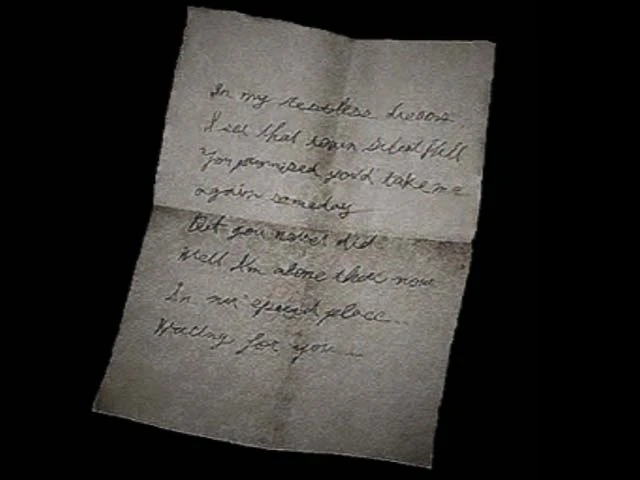 In my restless dreams,
I see that town Silent Hill
You promised you'd take me
again someday
But you never did
Well I'm alone there now
In our special place...
Waiting for you...